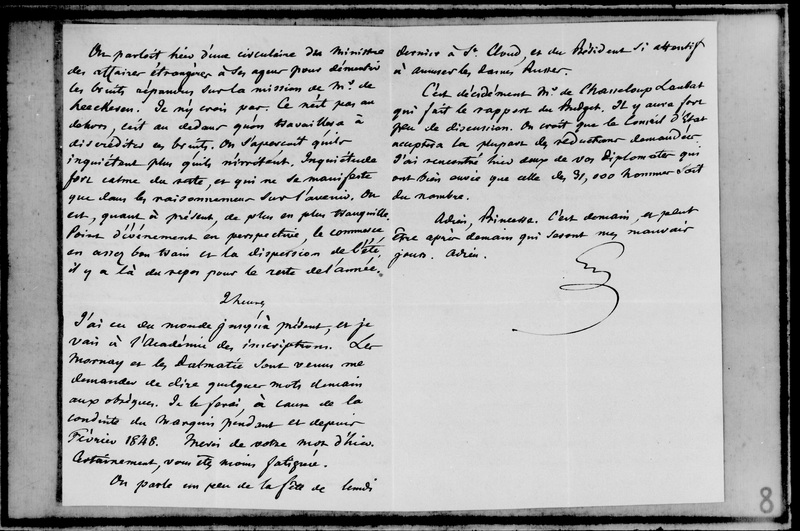 On parloit hier d'une circulaire du Ministre
des affaires étrangères à ses agens pour démentir
les bruits répandus sur la mission de Mr. de
Heeckeren. Je n'y crois pas. Ce n'est pas au
dehors, c'est au dedans qu'on travaillera à
discréditer ces bruits. On s'aperçoit qu'ils
inquiètent plus qu'ils n'irritent. Inquiétude
fort calme du reste, et qui ne se manifeste
que dans les raisonnemens sur l'avenir. On
est, quant à présent, de plus en plus tranquille.
Point d'événement en perspective, le commerce
en assez bon train et la dispersion de l'été,
il y a là du repos pour le reste de l'année.
2 heures
J'ai eu du monde jusqu'à présent, et je
vais à l'Académie des inscriptions. Les
Mornay et les Dalmatie sont venus me
demander de dire quelques mots demain
aux obsèques. Je le ferai, à cause de la
conduite du Marquis pendant et depuis
Février 1848. Merci de votre mot d'hier.
Certainement, vous êtes moins fatiguée.
On parle un peu de la fête de lundi
dernier à St Cloud, et du Président si attentif
à amuser les dames Russes.
C'est décidément Mr de Chasseloup Laubat
qui fait le rapport du Budget. Il y aura fort
peu de discussion. On croit que le Conseil d'Etat
acceptera la plupart des réductions demandées.
J'ai rencontré hier deux de vos diplomates qui
ont très envie que celle des 31,000 hommes soit
du nombre.
Adieu, Princesse. C'est demain, et peut
être après demain qui seront mes mauvais
jours. Adieu.
8